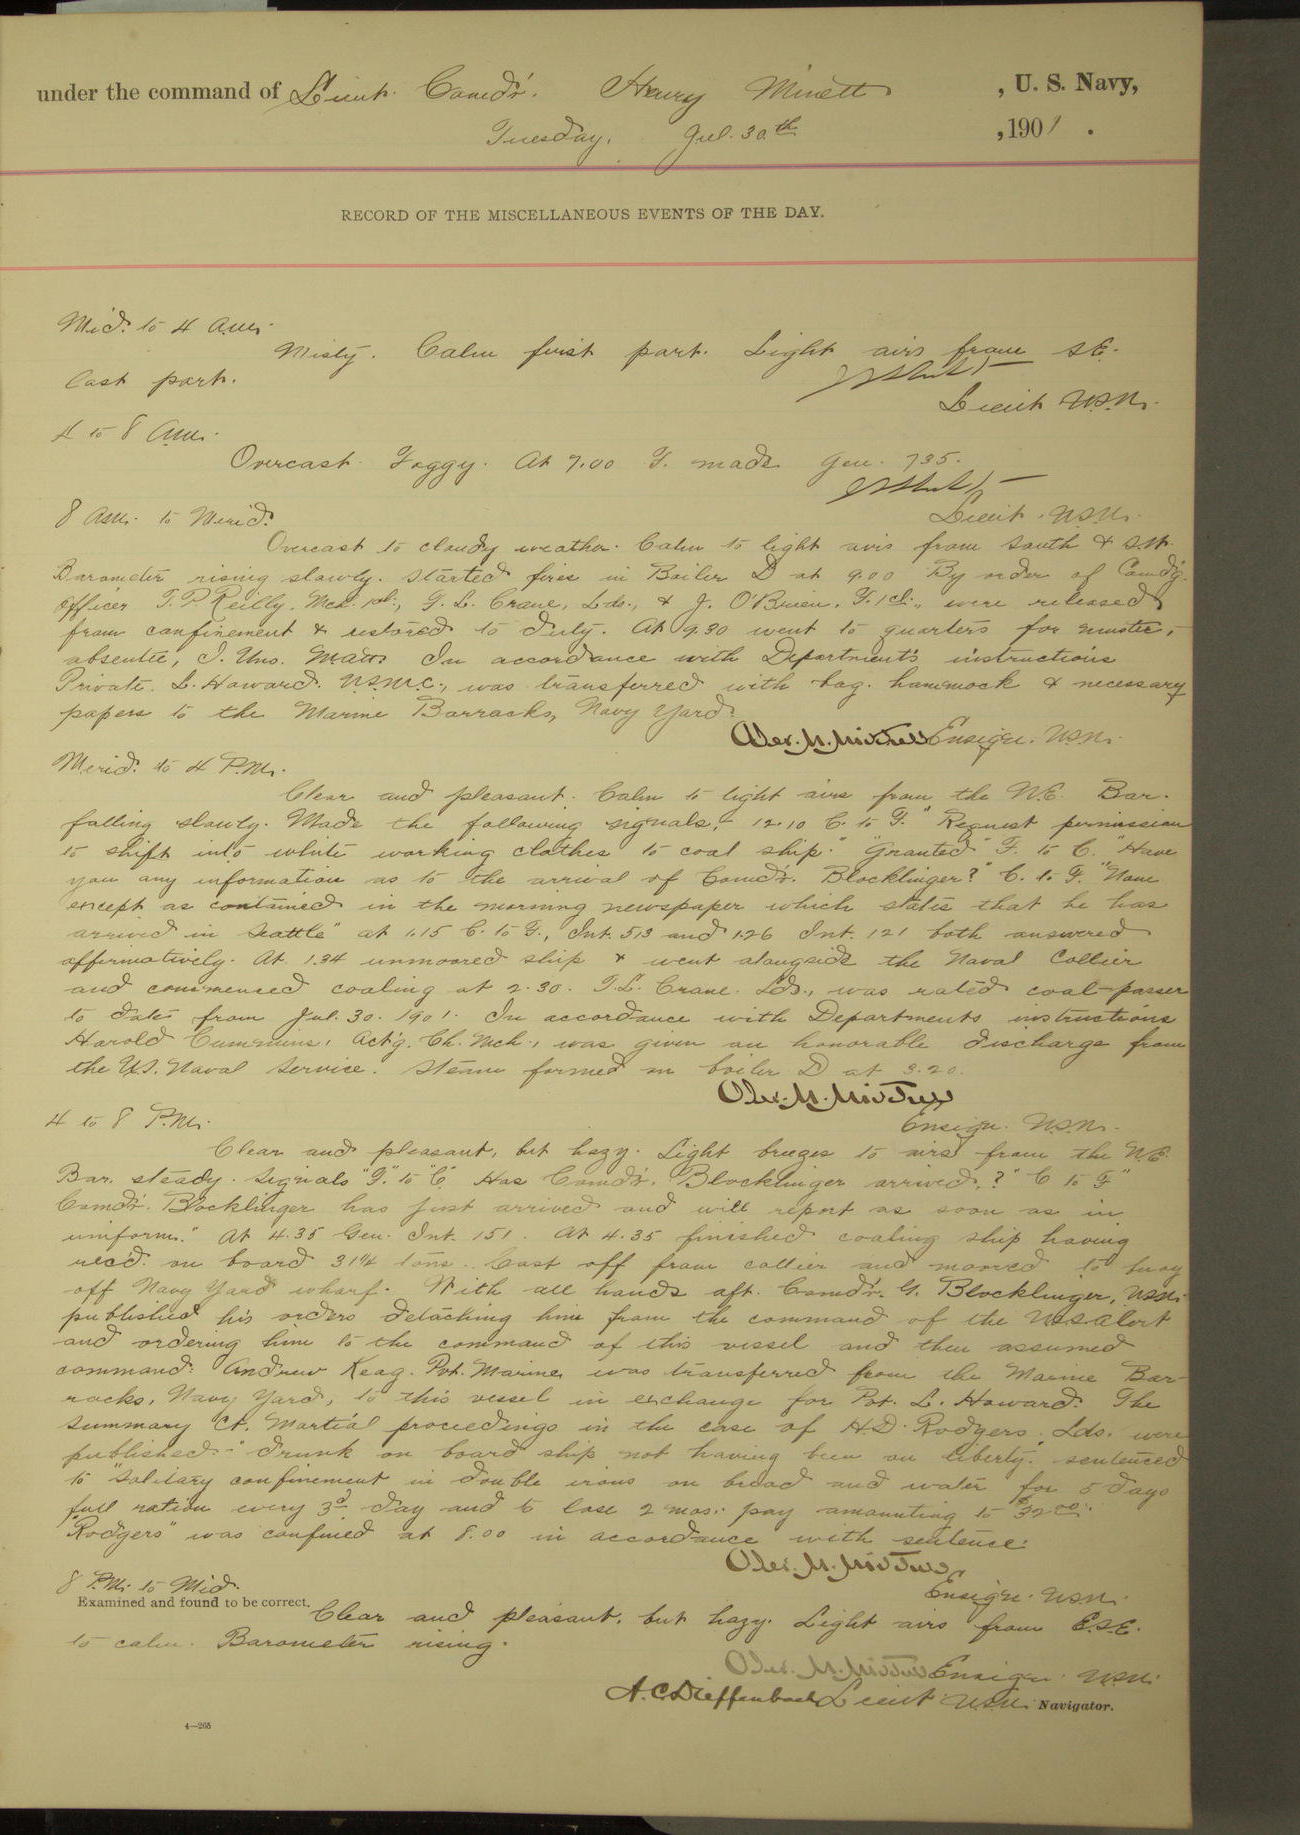 under the command of Lieut. Comd'r. Henry Minett, U. S. Navy,
Tuesday, Jul. 30th, 1901.
RECORD OF THE MISCELLANEOUS EVENTS OF THE DAY.
Mid. to 4 A.M.
Misty. Calm first part. Light airs from S.E.
last part.
Lieut U.S.N.
4 to 8 A.M.
Overcast. Foggy. At 7.00 F. made Gen. 735.
Lieut. U.S.N.
8 A.M. to Merid.
Overcast to cloudy weather. Calm to light airs from South & S.W.
Barometer rising slowly. Started fires in Boiler D at 9.00 By order of Comd'g.
Officer T. P. Reilly, Mch. 1cl., F. L. Crane, Lds., & J. O'Brien, F. 1cl., were released
from confinement & restored to duty. At 9.30 went to quarters for muster,
absentee, J. Uno. Matt. In accordance with Department's instructions
Private L. Howard. U.S.M.C., was transferred with bag. hammock & necessary
papers to the Marine Barracks, Navy Yard.
Ensign. U.S.N.
Merid. to 4 P.M.
Clear and pleasant. Calm to light airs from the N.E. Bar.
falling slowly. Made the following signals,- 12.10 C. to F. "Request permission
to shift into white working clothes to coal ship." "Granted" F. to C. "Have
you any information as to the arrival of Comd'r. Blocklinger?" C. to F. "None
except as contained in the morning newspaper which states that he has
arrived in Seattle" at 1.15 C. to F., Int. 513 and 1.26 Int. 121 both answered
affirmatively. At 1.34 unmoored ship & went alongside the Naval Collier
and commenced coaling at 2.30. F. L. Crane. Lds., was rated coal-passer
to date from Jul. 30. 1901. In accordance with Departments instructions
Harold Cummins, Act'g. Ch. Mch., was given an honorable discharge from
the U.S. Naval Service. Steam formed in boiler D at 3.20.
Ensign. U.S.N.
4 to 8 P.M.
Clear and pleasant, but hazy. Light breezes to airs from the N.E.
Bar. steady. Signals "F." to "C." Has Comd'r. Blocklinger arrived,?" C to F"
Comd'r. Blocklinger has just arrived and will report as soon as in
uniform." At 4.35 Gen. Int. 151. At 4.35 finished coaling ship having
rec'd. on board 31¼ tons. Cast off from collier and moored to buoy
off Navy Yard wharf. With all hands aft. Comd'r. G. Blocklinger, USN.
published his orders detaching him from the command of the U.S.S. Alert
and ordering him to the command of this vessel and then assumed
command. Andrew Keag. Pvt. Marine, was transferred from the Marine Bar-
racks, Navy Yard, to this vessel in exchange for Pvt. L. Howard. The
Summary Ct. Martial proceedings in the case of H.D. Rodgers, Lds. were
published - "drunk on board ship not having been on liberty". sentenced
to "Solitary confinement in double irons on bread and water for 5 days
full ration every 3d day and to lose 2 mos. pay amounting to $32.00.
"Rodgers" was confined at 8.00 in accordance with sentence.
Ensign. U.S.N.
8 P.M. to Mid.
Examined and found to be correct.
Clear and pleasant, but hazy. Light airs from E.S.E.
to calm. Barometer rising.
Ensign. U.S.N.
A. C. Dieffenbach Lieut U.S.N. Navigator.
4—205